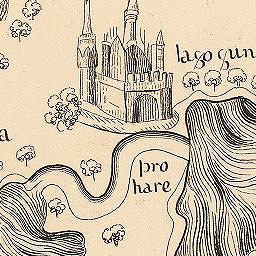 lago gun
a
pro
hare